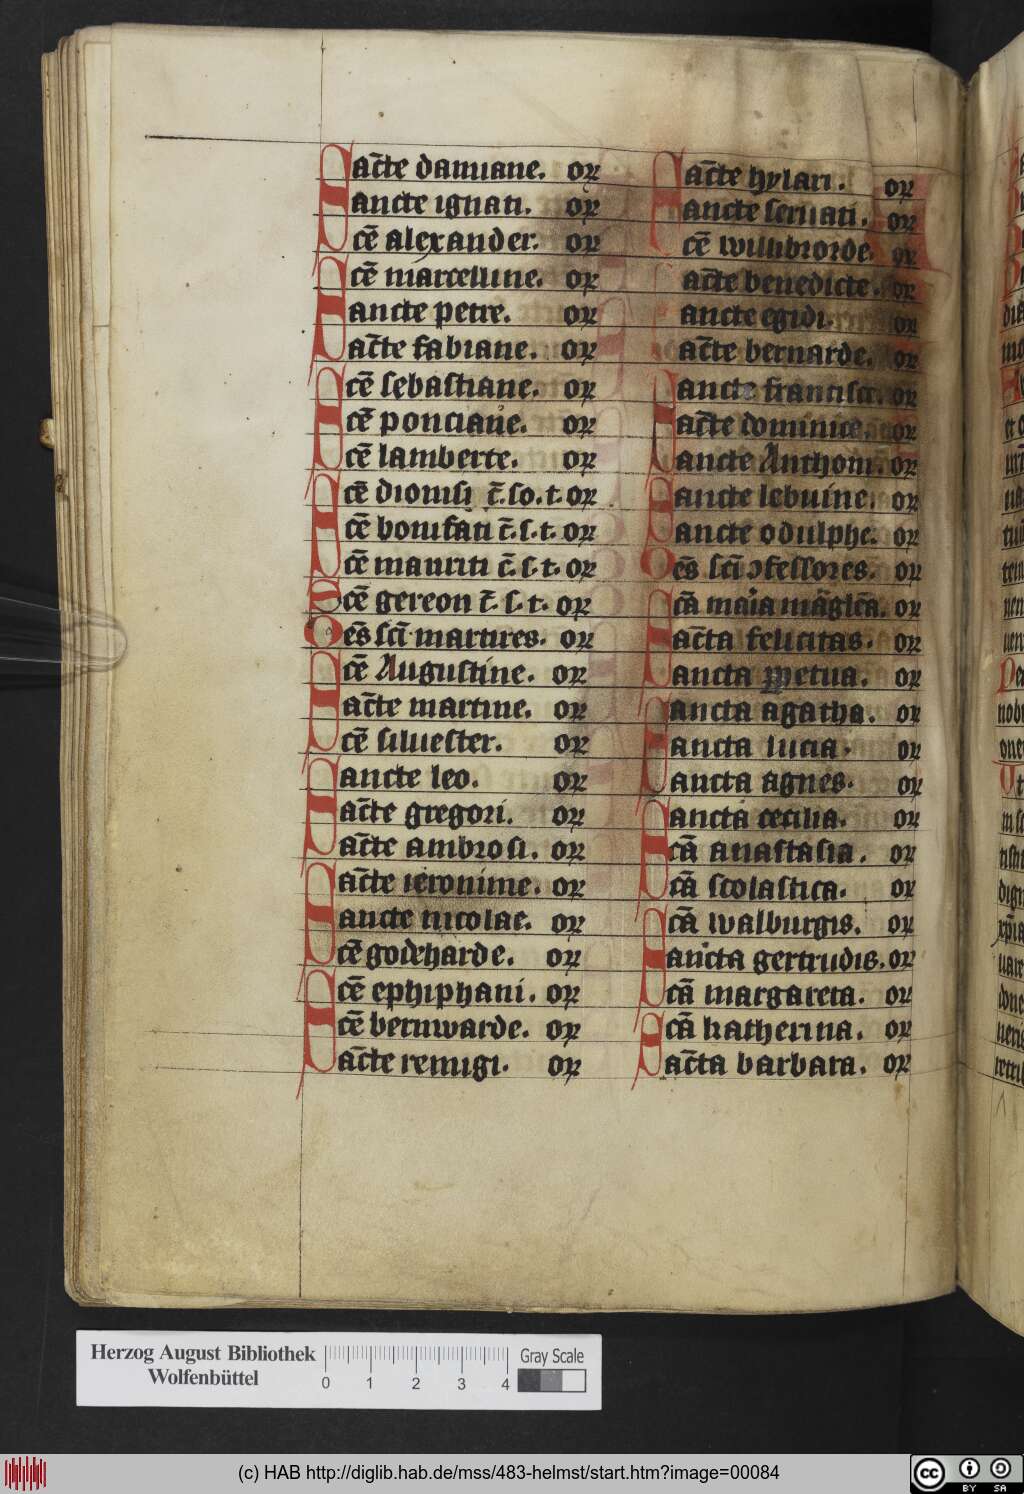 Sãcte damiane. or
Sancte ignati. or
Scẽ alexander. or
Scẽ marcelline. or
Sancte petre. or
Sac̃te fabiane. or
Scẽ sebastiane. or
Scẽ ponciane. or
Scẽ lamberte. or
Scẽ dionisi c̃. so. t. or
Scẽ bonifati c̃. s. t. or
Scẽ mauriti c̃. s. t. or
Scẽ gereon c̃. s. t. or
Oẽs scĩ martires. or
Scẽ Augustine. or
Sac̃te martine. or
Scẽ siluester. or
Sancte leo. or
Sac̃te gregori. or
Sac̃te ambrosi. or
Sac̃te ieronime. or
Sancte nicolae. or
Scẽ godeharde. or
Scẽ ephiphani. or
Scẽ bernwarde. or
Sac̃te remigi. or
Sac̃te hylari. or
Sancte seruati. or
Scẽ willibrorde. or
Sac̃te benedicte. or
Sancte egidi. or
Sac̃te bernarde. or
Sancte francisce. or
Sac̃te dominice. or
Sancte Anthoni. or
Sancte lebuine. or
Sancte odulphe. or
Oẽs scĩ ↄfessores. or
Scã maia mãglẽa. or
Sac̃ta felicitas. or
Sancta ꝑpetua. or
Sancta agatha. or
Sancta lucia. or
Sancta agnes. or
Sancta cecilia. or
Scã anastasia. or
Scã scolastica. or
Scã walburgis. or
Sancta gertrudis. or
Scã margareta. or
Scã katherina. or
Sac̃ta barbara. or
Herzog August Bibliothek
Wolfenbüttel
0 1 2 3 4
Gray Scale
(c) HAB http://diglib.hab.de/mss/483-helmst/start.htm?image=00084
cc BY SA